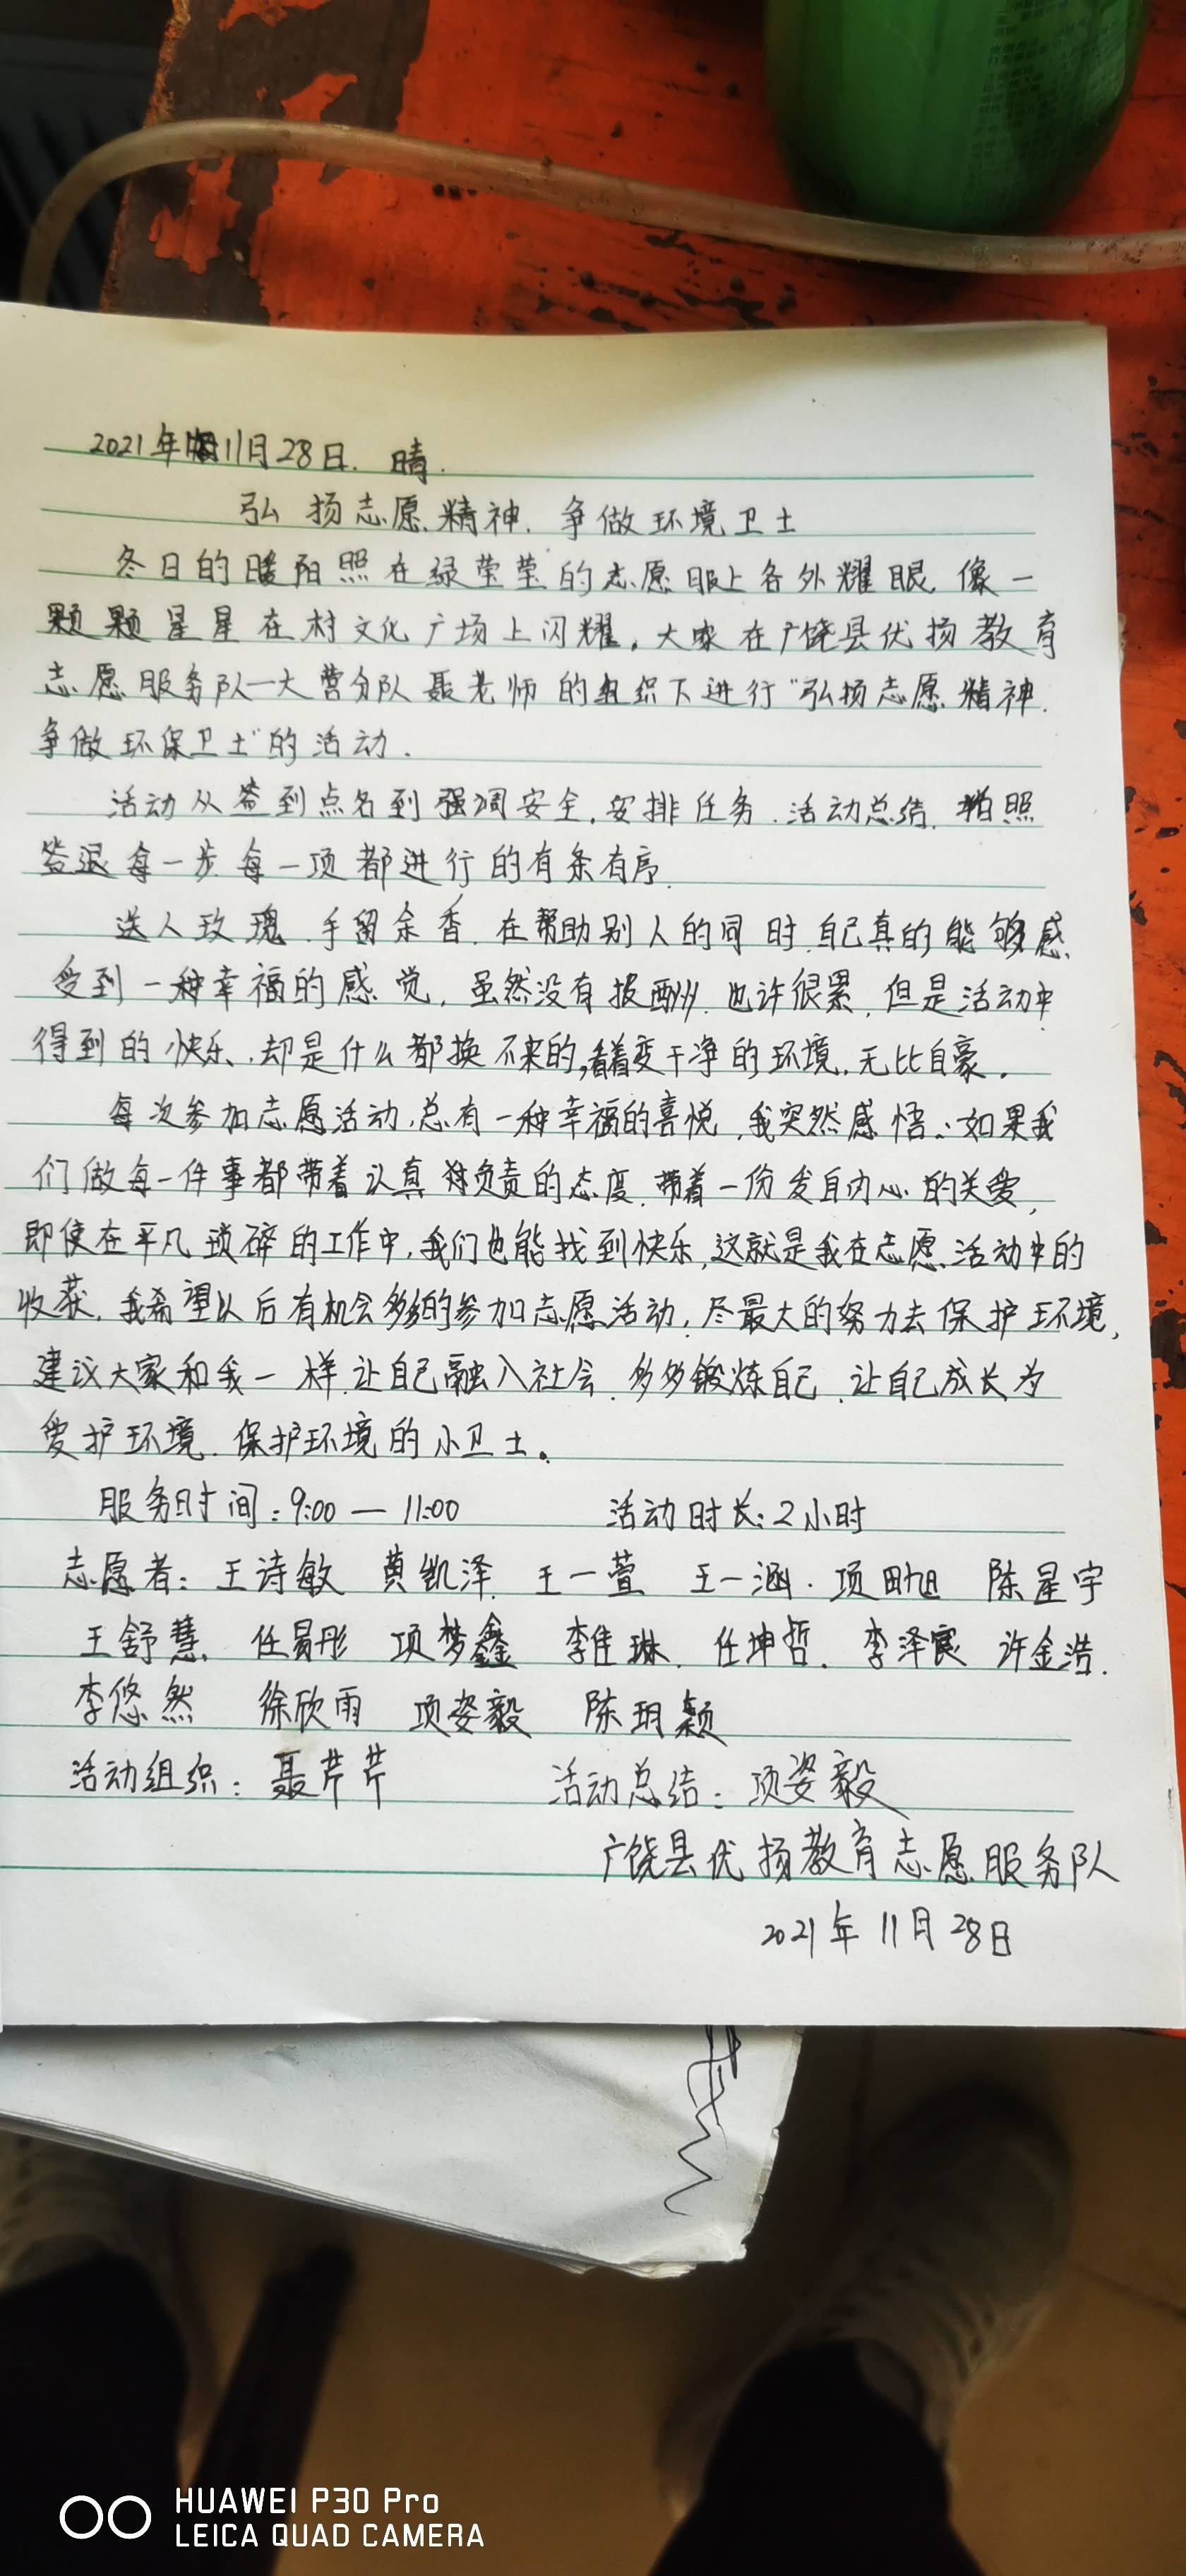 2021年11月28日. 晴.
弘扬志愿精神. 争做环境卫士
冬日的暖阳照在绿莹莹的志愿服上各外耀眼. 像一
颗颗星星在村文化广场上闪耀. 大家在广饶县优扬教育
志愿服务队一大营分队聂老师的组织下进行“弘扬志愿精神.
争做环保卫士”的活动.
活动从签到点名到强调安全. 安排任务. 活动总结. 拍照
签退每一步每一项都进行的有条有序.
送人玫瑰. 手留余香. 在帮助别人的同时. 自己真的能够感
受到一种幸福的感觉. 虽然没有报酬. 也许很累. 但是活动中
得到的快乐. 却是什么都换不来的, 看着变干净的环境. 无比自豪.
每次参加志愿活动. 总有一种幸福的喜悦. 我突然感悟: 如果我
们做每一件事都带着认真对负责的态度. 带着一份发自内心的关爱,
即使在平凡琐碎的工作中, 我们也能找到快乐, 这就是我在志愿活动中的
收获. 我希望以后有机会多多的参加志愿活动. 尽最大的努力去保护环境,
建议大家和我一样. 让自己融入社会. 多多锻炼自己. 让自己成长为
爱护环境. 保护环境的小卫士.
服务时间: 9:00 — 11:00 活动时长: 2小时
志愿者: 王诗敏 黄凯泽 王一萱 王一涵. 项旭 陈星宇
王舒慧. 任彤 项梦鑫 李佳琳. 任坤哲. 李泽宸 许金浩.
李悠然 徐欣雨 项姿毅 陈玥颖
活动组织: 聂芹芹 活动总结: 项姿毅
广饶县优扬教育志愿服务队
2021年11月28日
HUAWEI P30 Pro
LEICA QUAD CAMERA